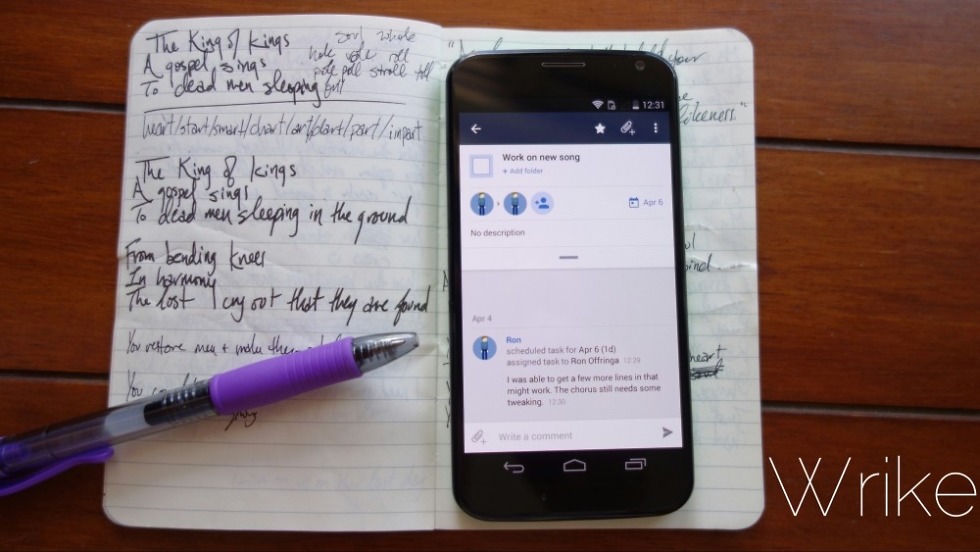 The King of Kings
A gospel sings
To dead men sleeping
soul whole
hole role roll
pole poll stroll toll
heart/start/smart/chart/art/dart/part/impart
The King of Kings
A gospel sings
To dead men sleeping in the ground
From bending knees
In harmony
The lost I cry out that they are found
You restore men + make
You
likeness."
heart
12:31
Work on new song
+ Add folder
Apr 6
No description
Apr 4
Ron
scheduled task for Apr 6 (1d)
assigned task to Ron Offringa 12:29
I was able to get a few more lines in that
might work. The chorus still needs some
tweaking. 12:30
Write a comment
Wrike